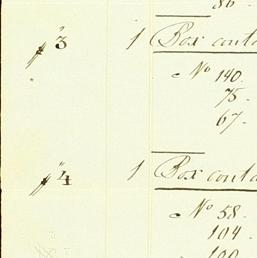 86
" 3 1 Box conta
No 140.
75.
67.
" 4 1 Box conta
No 58.
104.
100